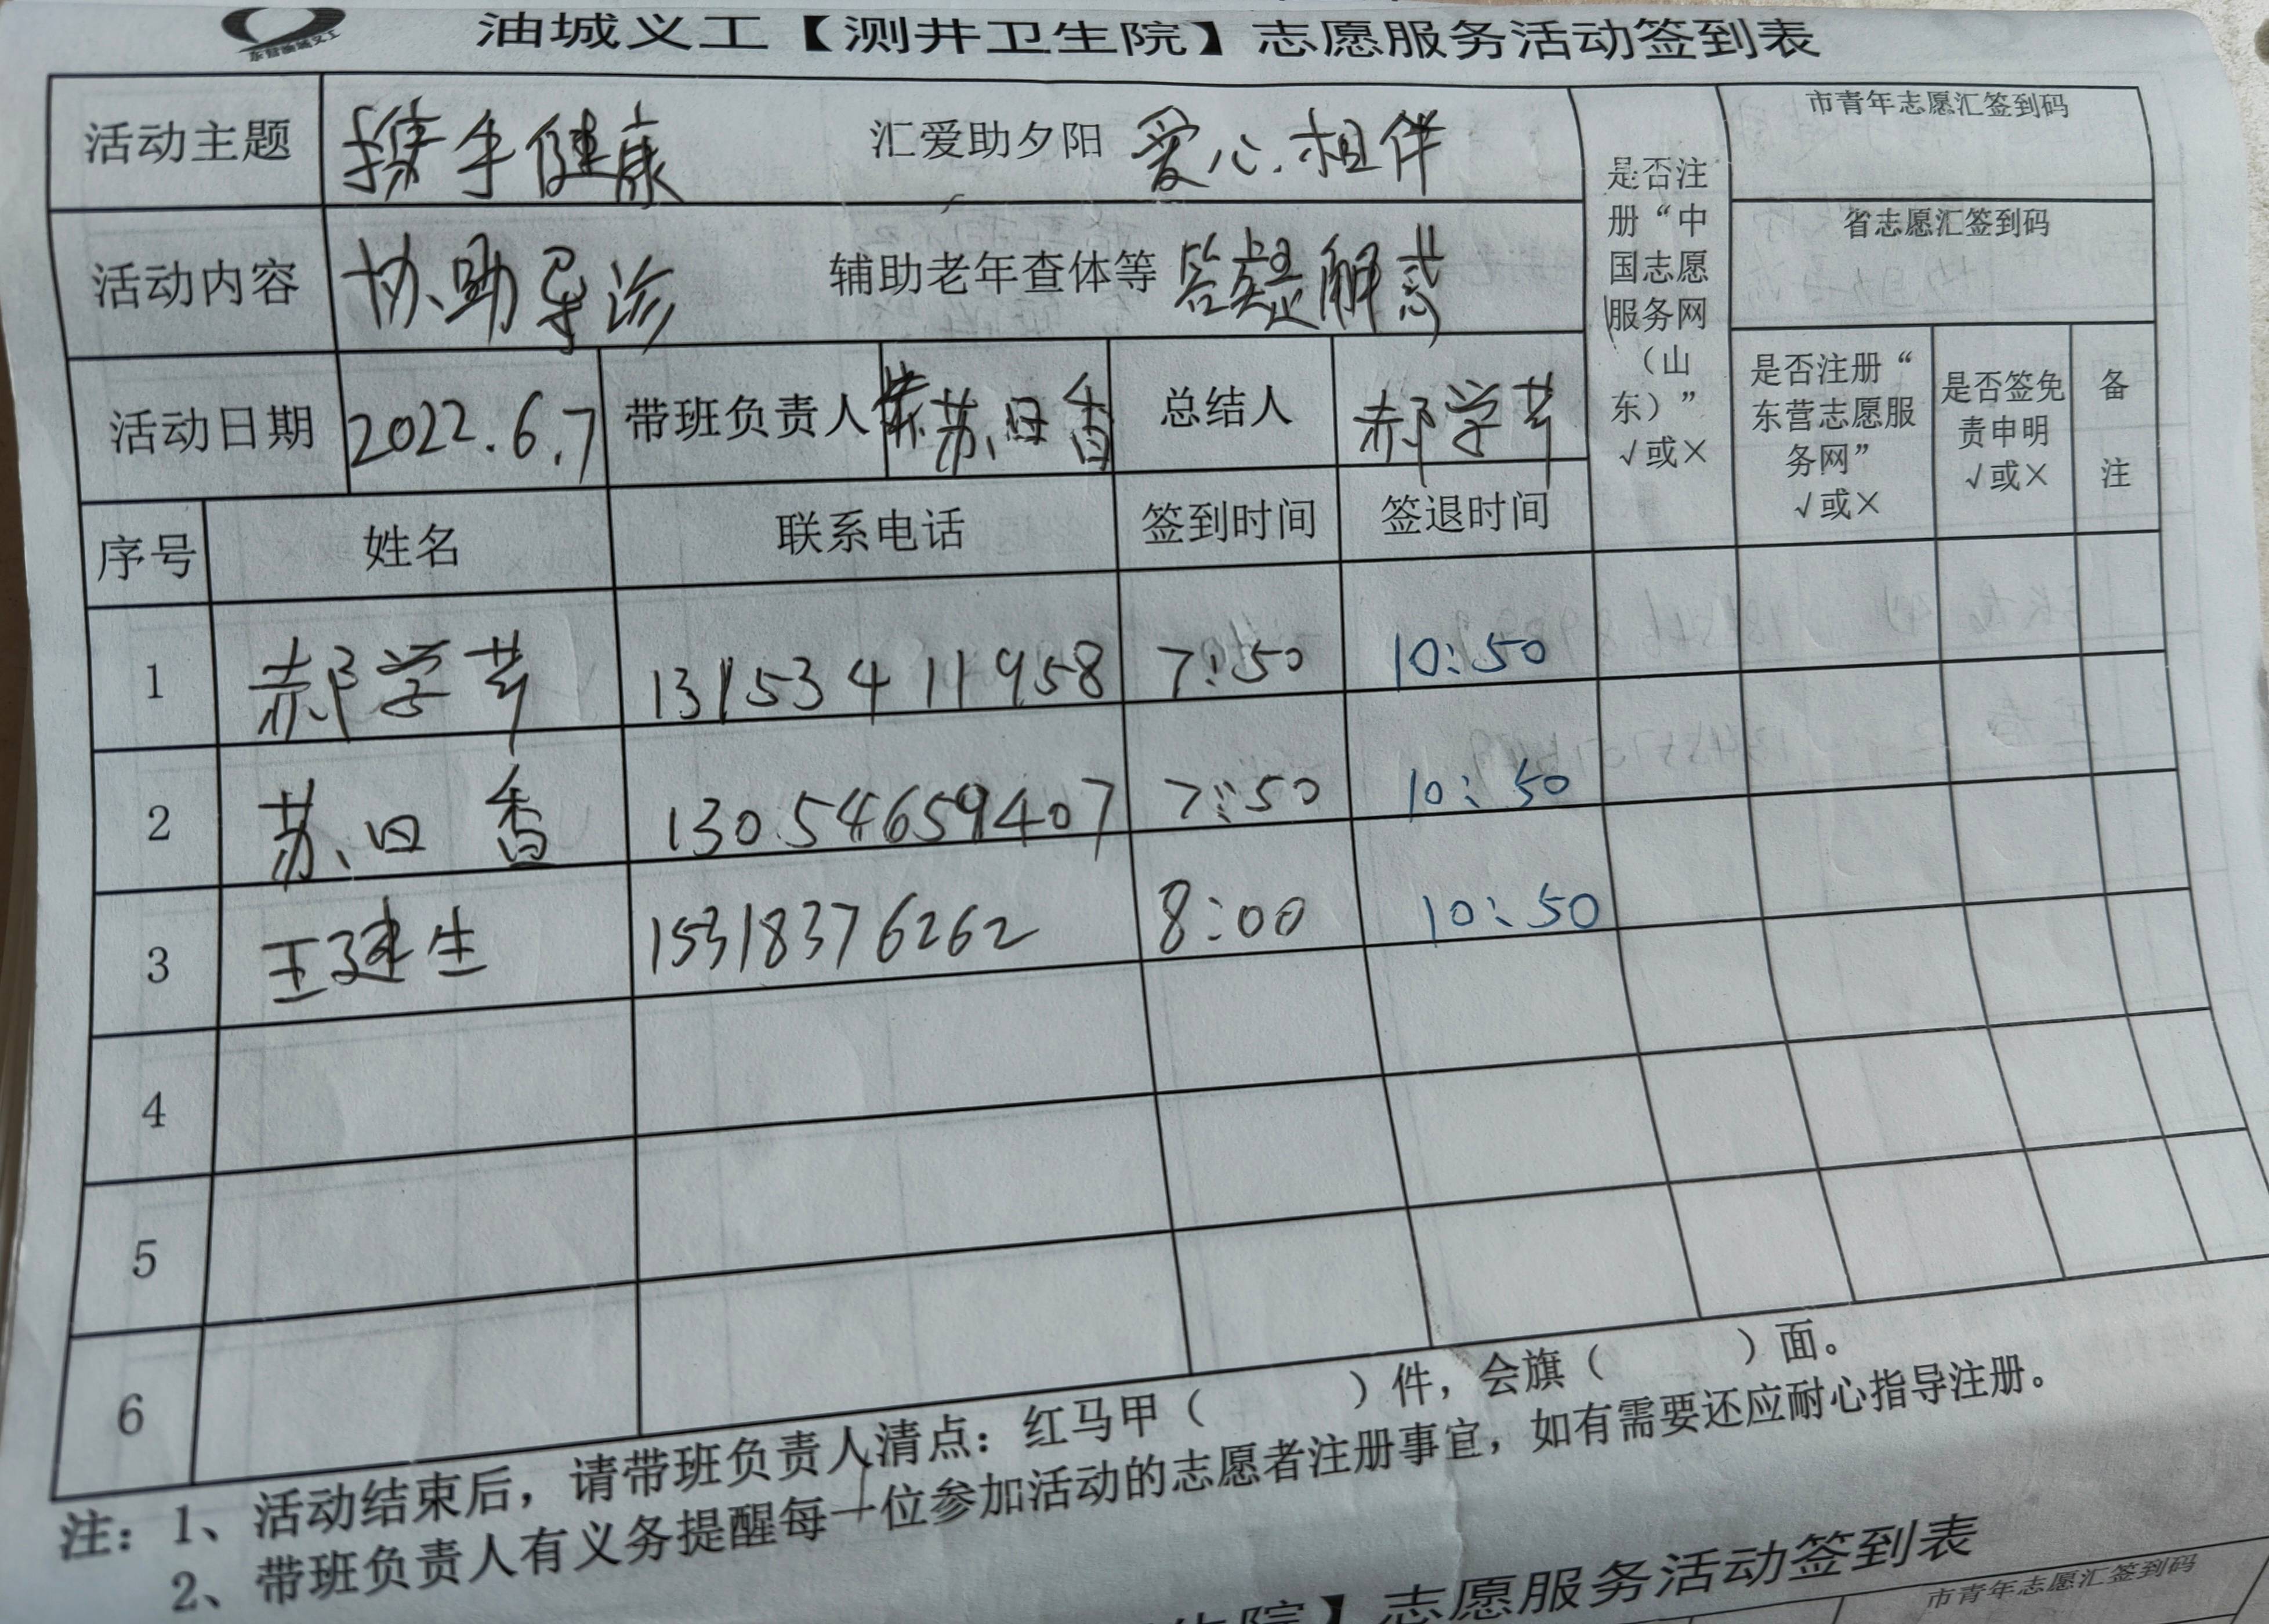 东营油城义工
油城义工【测井卫生院】志愿服务活动签到表
活动主题 携手健康 汇爱助夕阳 爱心相伴
活动内容 协助导诊 辅助老年查体等 答疑解惑
活动日期 2022.6.7 带班负责人 苏日香 总结人 郝学芳
是否注册“中国志愿服务网(山东)”√或×
市青年志愿汇签到码
省志愿汇签到码
是否注册“东营志愿服务网”√或×
是否签免责申明√或×
备注
序号 姓名 联系电话 签到时间 签退时间
1 郝学芳 13153411958 7:50 10:50
2 苏日香 13054659407 7:50 10:50
3 王建生 15318376262 8:00 10:50
4
5
6
注：1、活动结束后，请带班负责人清点：红马甲（ ）件，会旗（ ）面。
2、带班负责人有义务提醒每一位参加活动的志愿者注册事宜，如有需要还应耐心指导注册。
生院】志愿服务活动签到表
市青年志愿汇签到码